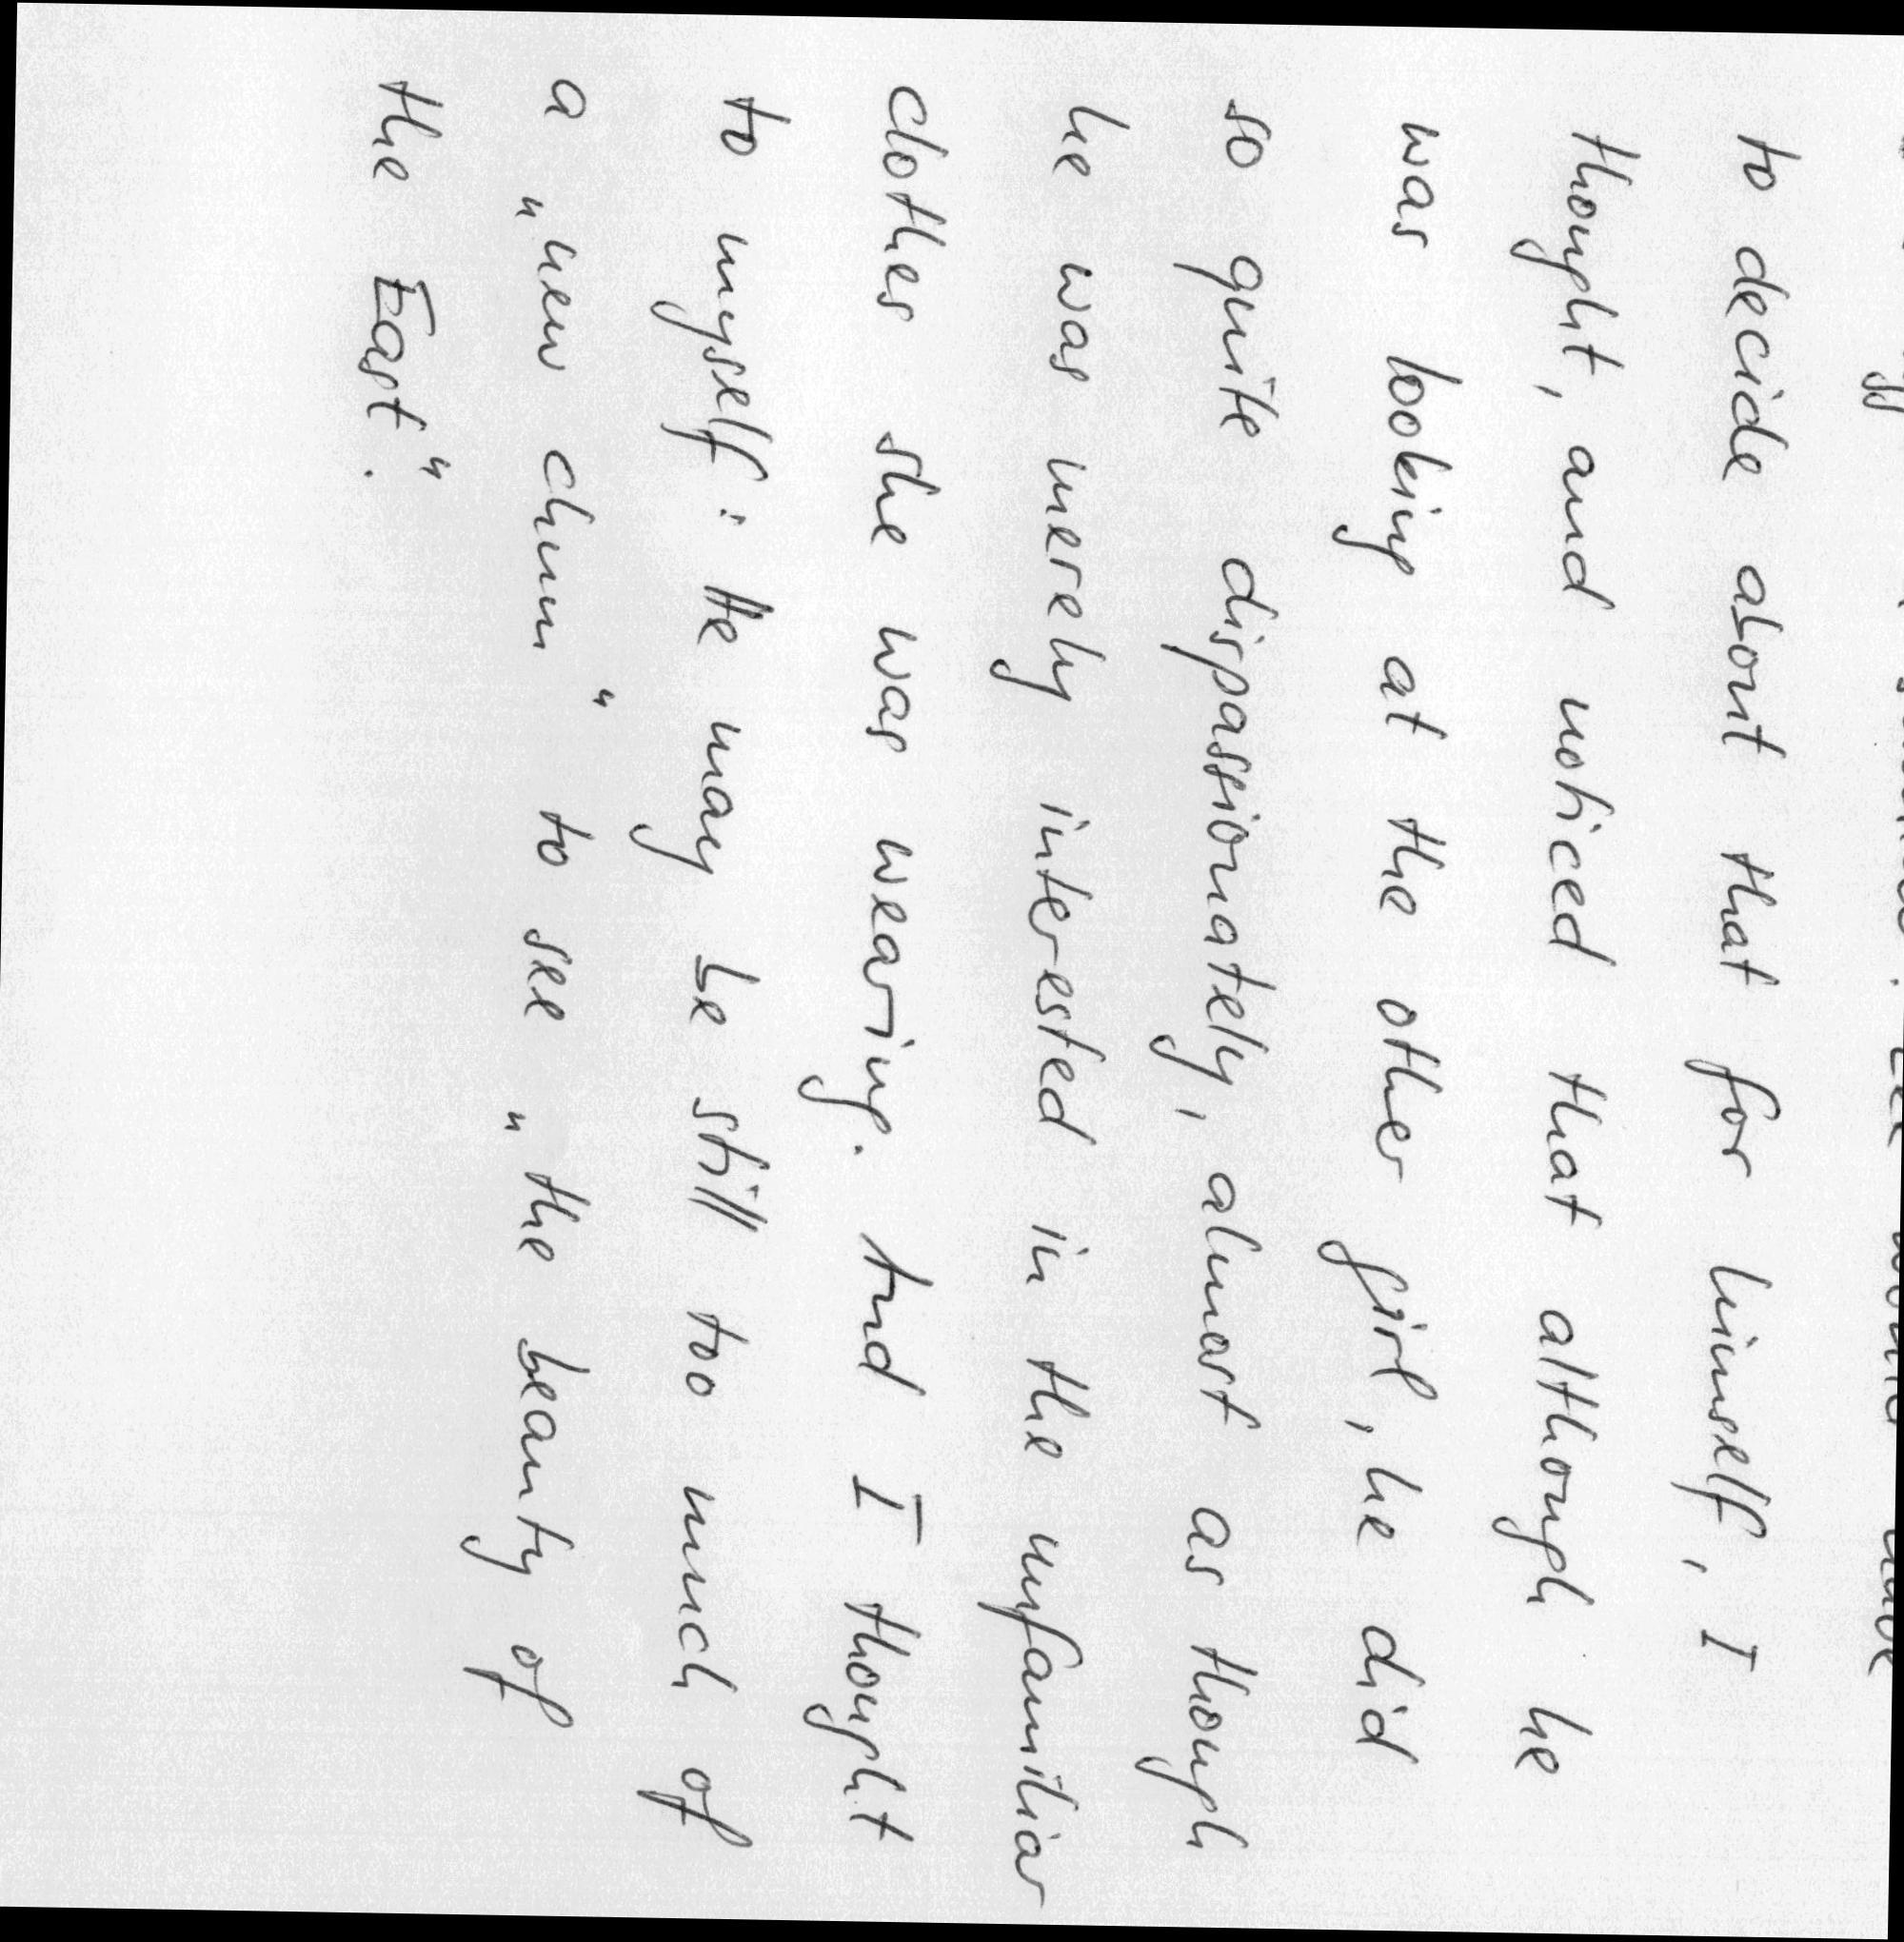 to decide about that for himself, I
thought, and noticed that although he
was looking at the other girl, he did
so quite dispassionately, almost as though
he was merely interested in the unfamiliar
clothes she was wearing. And I thought
to myself: He may be still too much of
a „new chum" to see „the beauty of
the East".